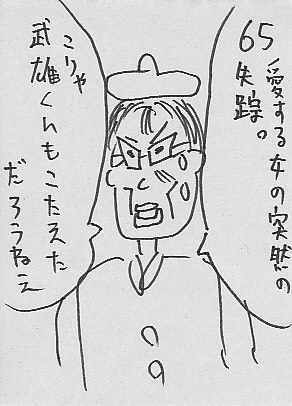 65
愛する女の突然の
失踪。
こりゃ
武雄くんもこたえた
だろうねえ